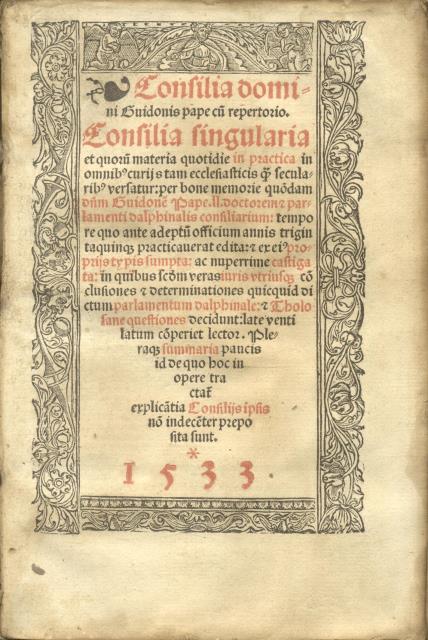 Consilia domi-
ni Guidonis pape cũ repertorio.
Consilia singularia
et quorũ materia quotidie in practica in
omnibꝰ curijs tam ecclesiasticis ꝙ̃ secula-
ribꝰ versatur: per bone memorie quõdam
dñm Guidonẽ Pape. ll. doctorem ⁊ par-
lamenti dalphinalis consiliarium: tempo
re quo ante adeptũ officium annis trigin
taquinqꝫ practicauerat edita: ⁊ ex eiꝰ pro-
prijs typis sumpta: ac nuperrime castiga
ta: in quibus scḋm veras iuris vtriusqꝫ cõ
clusiones ⁊ determinationes quicquid di
ctum parlamentum dalphinale: ⁊ Tholo
sane questiones decidunt: late venti
latum cõperiet lector. Ple-
raqꝫ summaria paucis
id de quo hoc in
opere tra
ctat̃
explicãtia Consilijs ipsis
nõ indecẽter prepo
sita sunt.
*
1533.